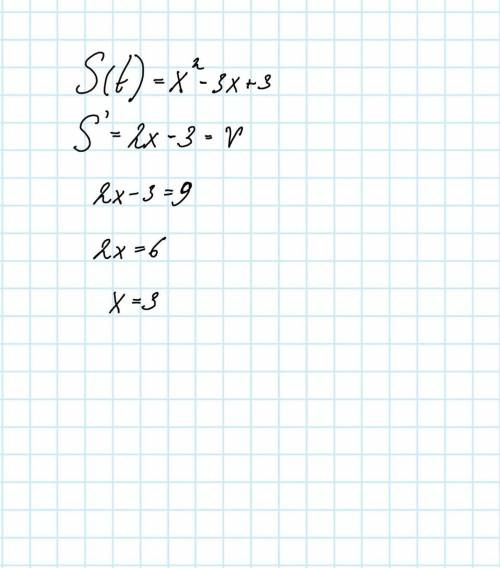 S(t) = x² - 3x + 3
S' = 2x - 3 = v
2x - 3 = 9
2x = 6
x = 3